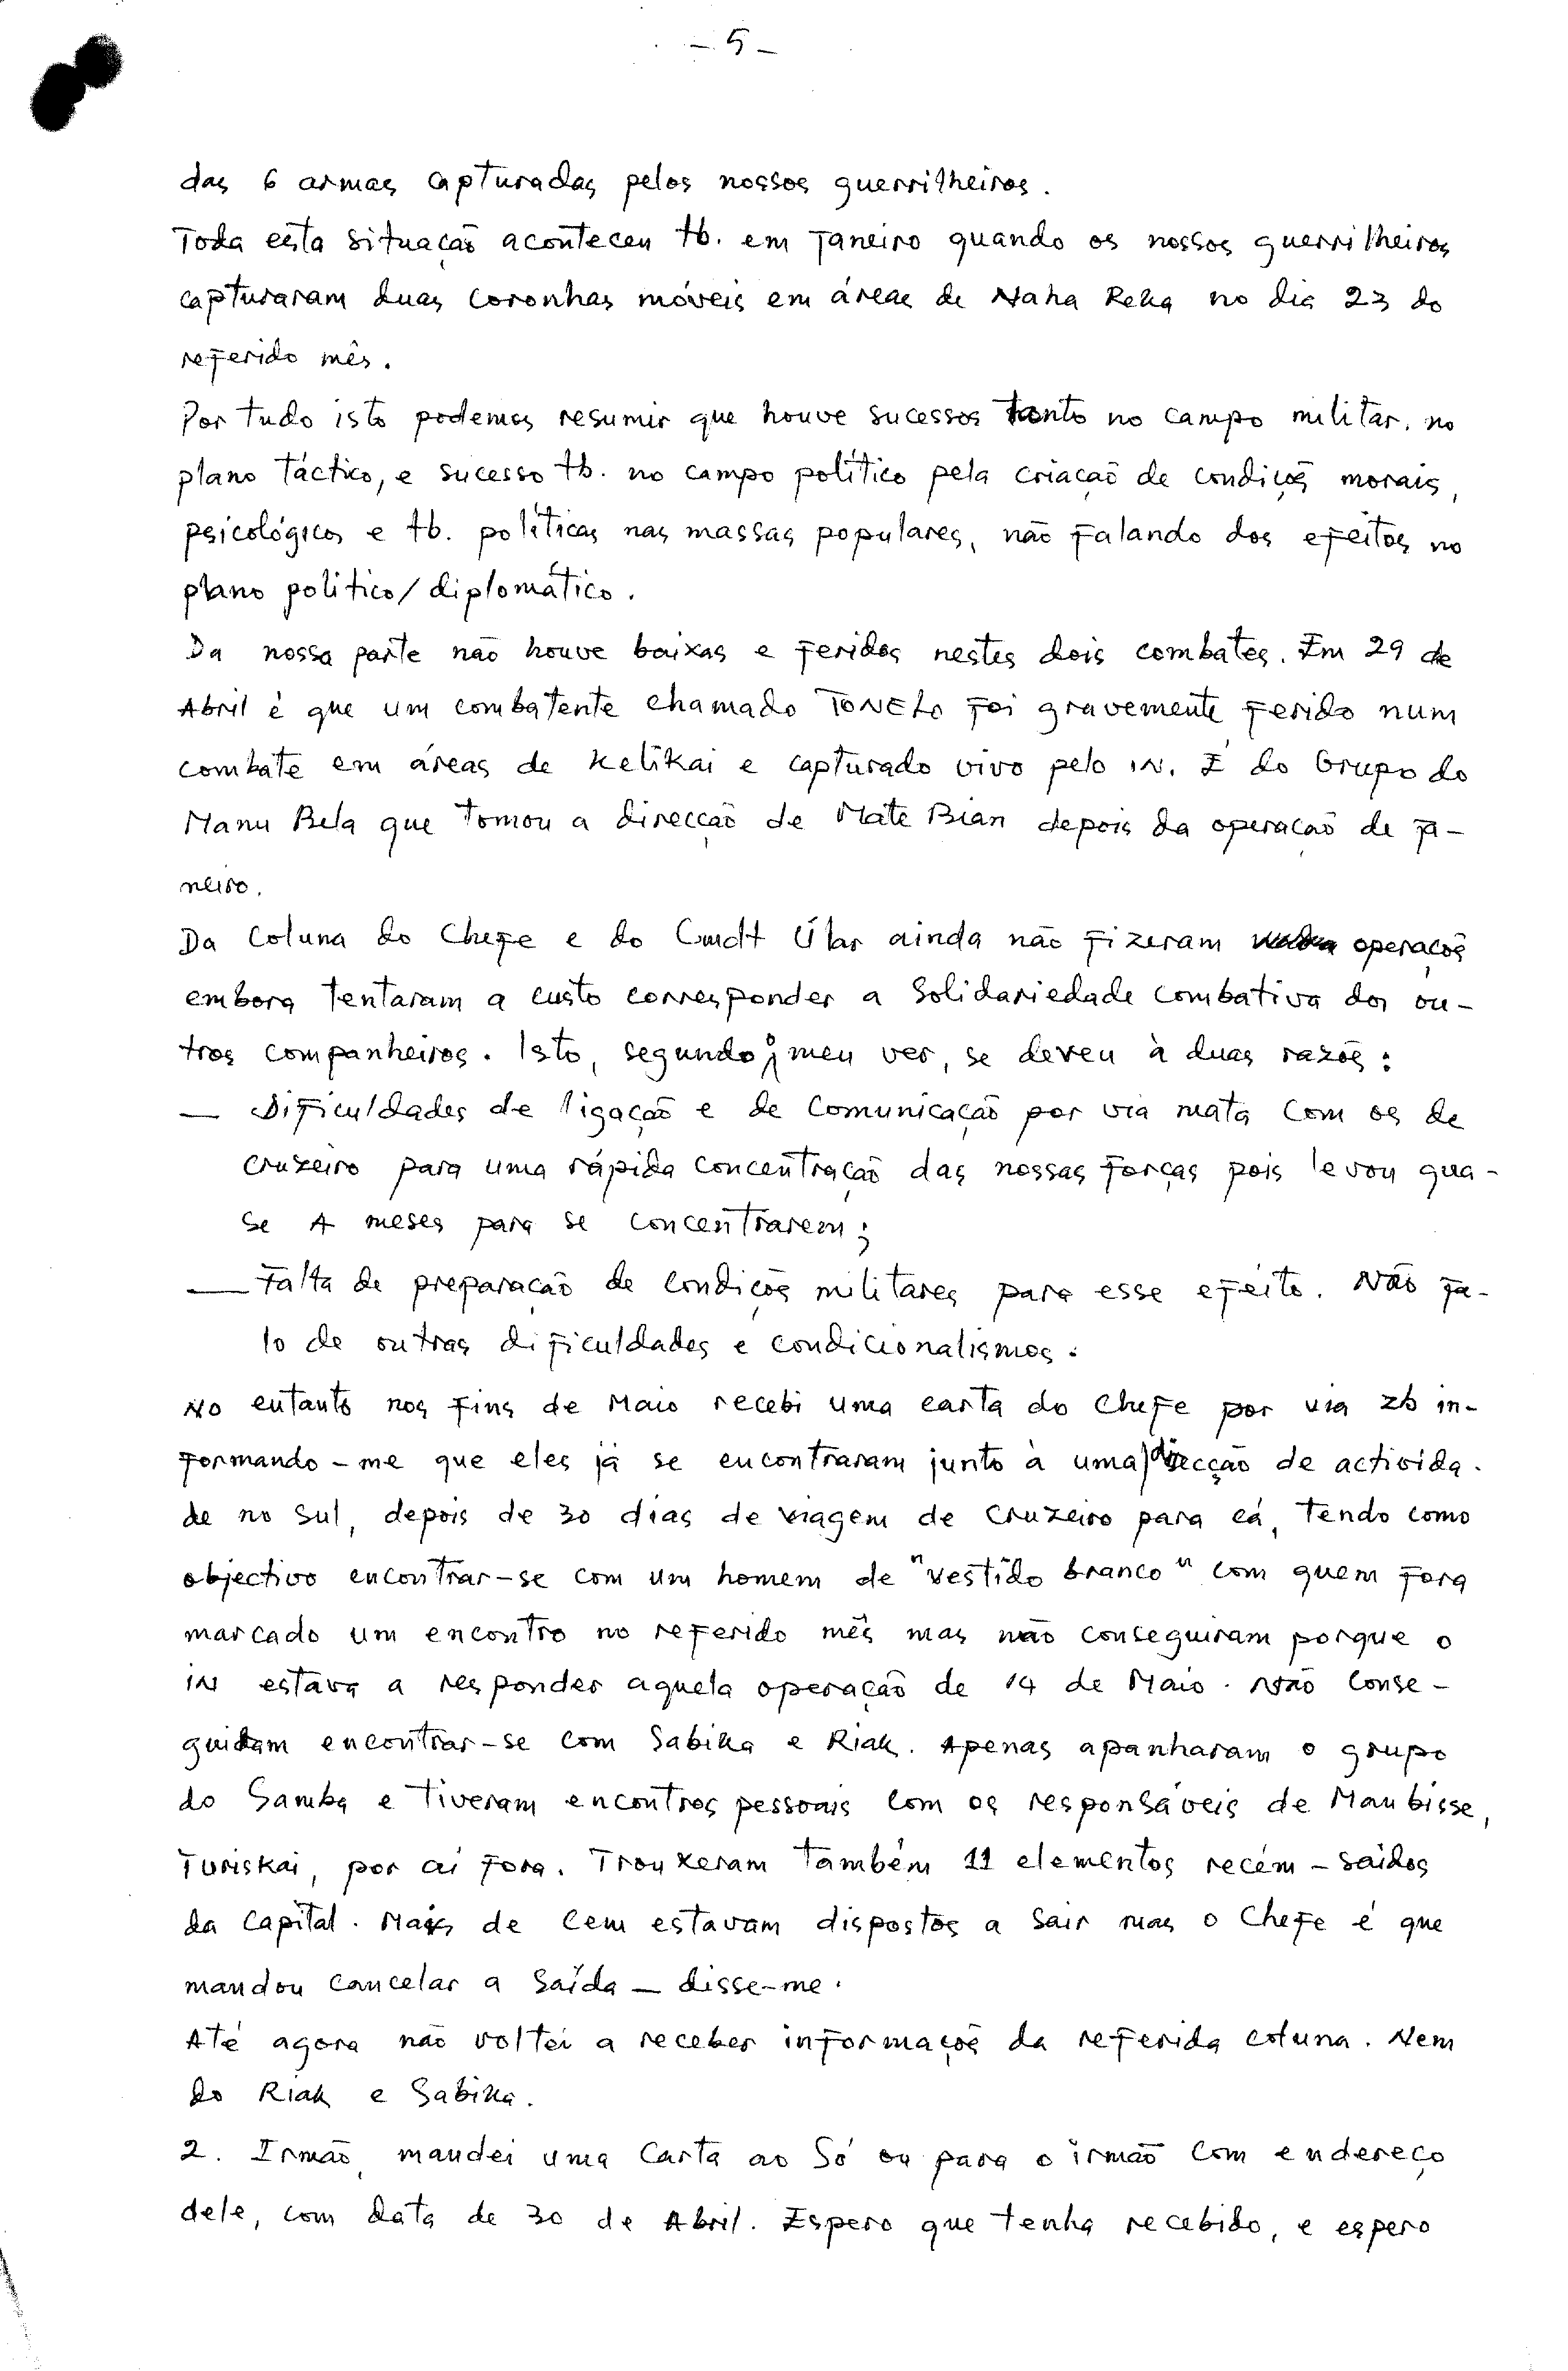 - 5 -
das 6 armas capturadas pelos nossos guerrilheiros.
Toda esta situação aconteceu tb. em Janeiro quando os nossos guerrilheiros
capturaram duas coronhas móveis em áreas de Naha Reka no dia 23 do
referido mês.
Por tudo isto podemos resumir que houve sucessos tanto no campo militar, no
plano táctico, e sucesso tb. no campo político pela criação de condições morais,
psicológicos e tb. políticas nas massas populares, não falando dos efeitos no
plano politico/diplomático.
Da nossa parte não houve baixas e feridos nestes dois combates. Em 29 de
Abril é que um combatente chamado TONELO foi gravemente ferido num
combate em áreas de Kelikai e capturado vivo pelo IN. É do Grupo do
Manu Bela que tomou a direcção de Mate Bian depois da operação de Ja-
neiro.
Da Coluna do Chefe e do Cmdt Ular ainda não fizeram operações
embora tentaram a custo corresponder a solidariedade combativa dos ou-
tros companheiros. Isto, segundo o meu ver, se deveu à duas razões:
— Dificuldades de ligação e de comunicação por via mata com os de
Cruzeiro para uma rápida concentração das nossas forças pois levou qua-
se 4 meses para se concentrarem;
— Falta de preparação de condições militares para esse efeito. Não fa-
lo de outras dificuldades e condicionalismos.
No entanto nos fins de Maio recebi uma carta do Chefe por via zb in-
formando-me que eles já se encontraram junto à uma direcção de activida-
de no sul, depois de 30 dias de viagem de Cruzeiro para cá, tendo como
objectivo encontrar-se com um homem de "vestido branco" com quem fora
marcado um encontro no referido mês mas não conseguiram porque o
IN estava a responder aquela operação de 14 de Maio. Não conse-
guiram encontrar-se com Sabika e Riak. Apenas apanharam o grupo
do Samba e tiveram encontros pessoais com os responsáveis de Maubisse,
Turiskai, por aí fora. Trouxeram também 11 elementos recém-saidos
da capital. Mais de cem estavam dispostos a sair mas o Chefe é que
mandou cancelar a saída — disse-me.
Até agora não voltei a receber informações da referida coluna. Nem
do Riak e Sabika.
2. Irmão, mandei uma carta ao Só ou para o irmão com endereço
dele, com data de 30 de Abril. Espero que tenha recebido, e espero